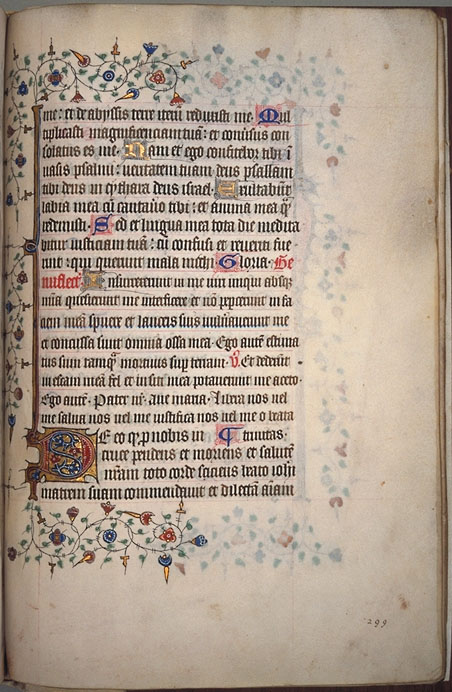 me: et de abyssis terre iterū reduxisti me. Mul
tiplicasti magnificenciam tuā: et conūsus con
solatus es me. Nam et ego confitebor tibi ī
uasis psalmi: ueritatem tuam deus psallam
tibi deus in cythara deus israel. Exultabūt
labia mea cū cantauero tibi: et anima mea q̄
redemisti. Sed et lingua mea tota die medita
bitur iusticiam tuā: cū confusi et reueriti fue
rint: qui querunt mala michi. Gloria.
Insurrexerunt in me uiri iniqui absq;
mīa quesierunt me interficere et nō pepcerunt in fa
ciem meā spuere et lanceis suis uulnerauerunt me
et concussa sunt omnia ossa mea. Ego autē estima
tus sum tamq̄ mortuus sup terram. V̄. Et dederūt
in escam meā fel et in siti mea potauerunt me aceto
Ego autē. Pater nr̄. aue maria. nos uel
me salua nos uel me iustifica nos uel me o beata
eo q̄ p nobis in Trinitas:
cruce pendens et moriens et salutē
nr̄am toto corde siciens beato iohī
matrem suam commendauit et dilectā aīam
299